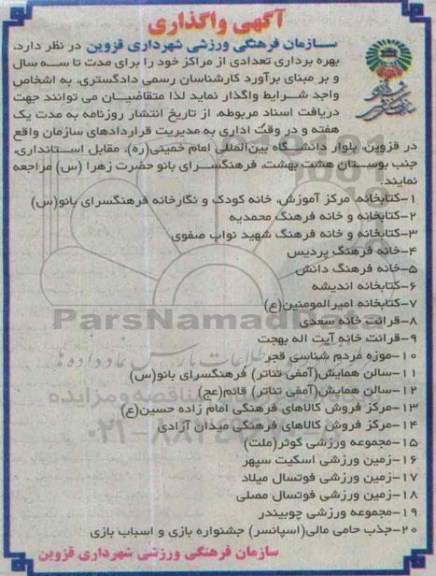 آگهی واگذاری
سازمان فرهنگی ورزشی شهرداری قزوین در نظر دارد،
بهره برداری تعدادی از مراکز خود را برای مدت تا سه سال
و بر مبنای برآورد کارشناسان رسمی دادگستری، به اشخاص
واجد شرایط واگذار نماید لذا متقاضیان می توانند جهت
دریافت اسناد مربوطه، از تاریخ انتشار روزنامه به مدت یک
هفته و در وقت اداری به مدیریت قراردادهای سازمان واقع
در قزوین، بلوار دانشگاه بین‌المللی امام خمینی(ره)، مقابل استانداری،
جنب بوستان هشت بهشت، فرهنگسرای بانو حضرت زهرا (س) مراجعه
نمایند.
۱-کتابخانه، مرکز آموزش، خانه کودک و نگارخانه فرهنگسرای بانو(س)
۲-کتابخانه و خانه فرهنگ محمدیه
۳-کتابخانه و خانه فرهنگ شهید نواب صفوی
۴-خانه فرهنگ پردیس
۵-خانه فرهنگ دانش
۶-کتابخانه اندیشه
۷-کتابخانه امیرالمومنین(ع)
ParsNamadData
۸-قرائت خانه سعدی
۹-قرائت خانه آیت اله بهجت
۱۰-موزه مردم شناسی قجر
۱۱-سالن همایش(آمفی تئاتر) فرهنگسرای بانو(س)
۱۲-سالن همایش(آمفی تئاتر) قائم(عج)
۱۳-مرکز فروش کالاهای فرهنگی امام زاده حسین(ع)
۱۴-مرکز فروش کالاهای فرهنگی میدان آزادی
۱۵-مجموعه ورزشی کوثر(ملت)
۱۶-زمین ورزشی اسکیت سپهر
۱۷-زمین ورزشی فوتسال میلاد
۱۸-زمین ورزشی فوتسال مصلی
۱۹-مجموعه ورزشی چوبیندر
۲۰-جذب حامی مالی(اسپانسر) جشنواره بازی و اسباب بازی
سازمان فرهنگی ورزشی شهرداری قزوین